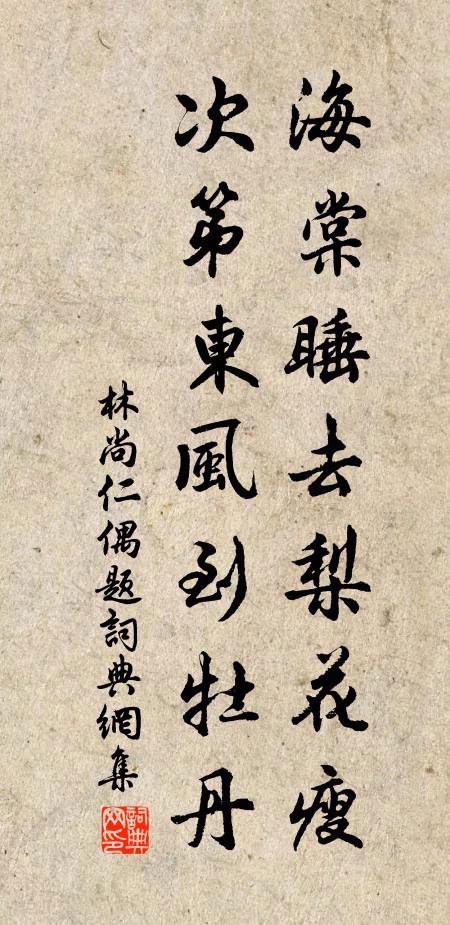 海棠睡去梨花瘦
次第東風到牡丹
林尚仁偶題詞典網集
詞典网印